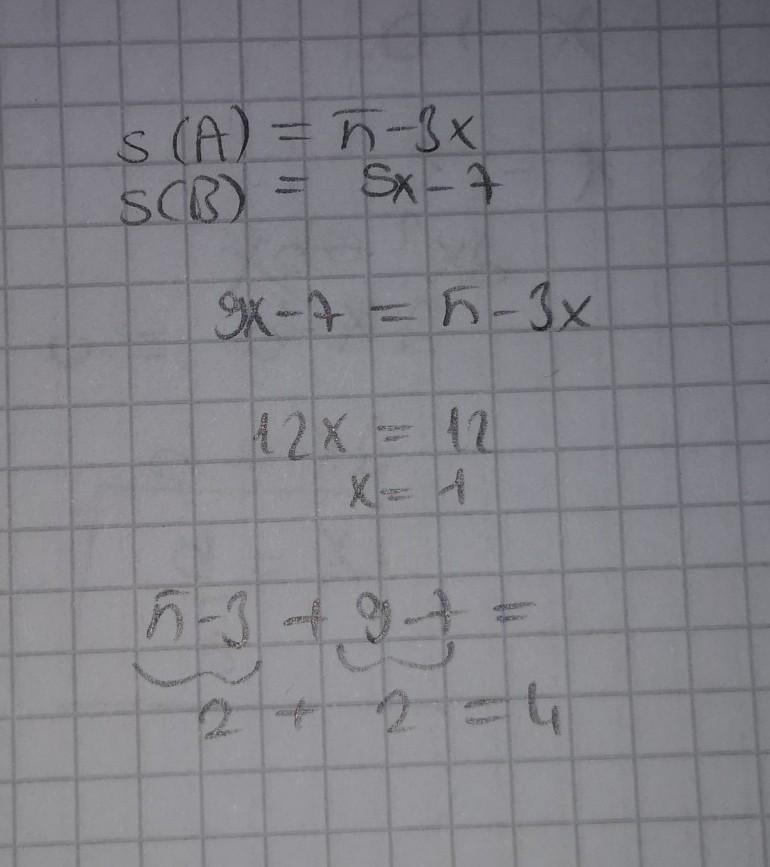 s(A) = 5-3x
s(B) = 9x-7
9x-7 = 5-3x
12x = 12
x = 1
5-3 + 9-7 =
2 + 2 = 4